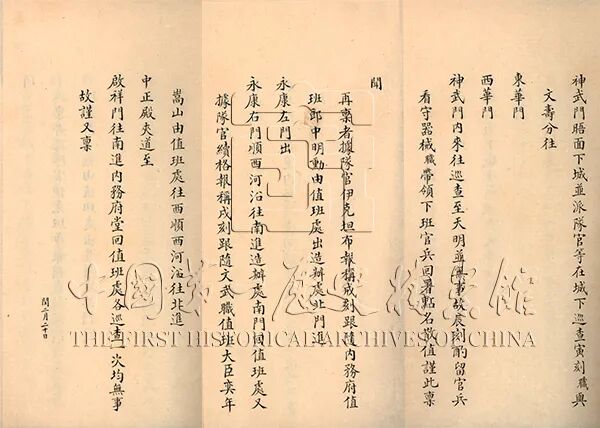 神武門面下城並派隊官等在城下巡查寅刻職與
文壽分往
東華門
西華門
神武門內來往巡查至天明並無事故辰刻酌留官兵
看守器械職帶領下班官兵回署點名散值謹此稟
聞
再稟者據隊官伊克坦布報稱戌刻跟隨內務府值
班郎中明勳由值班處出造辦處北門進
永康左門出
永康右門順西河沿往南進造辦處南門回值班處又
據隊官續格報稱戌刻跟隨文武職值班大臣奕年
嵩山由值班處往西順西河沿往北進
中正殿夾道至
啟祥門往南進內務府堂回值班處各巡查一次均無事
故謹又稟
閏二月二十日
中國第一歷史檔案館
THE FIRST HISTORICAL ARCHIVES OF CHINA